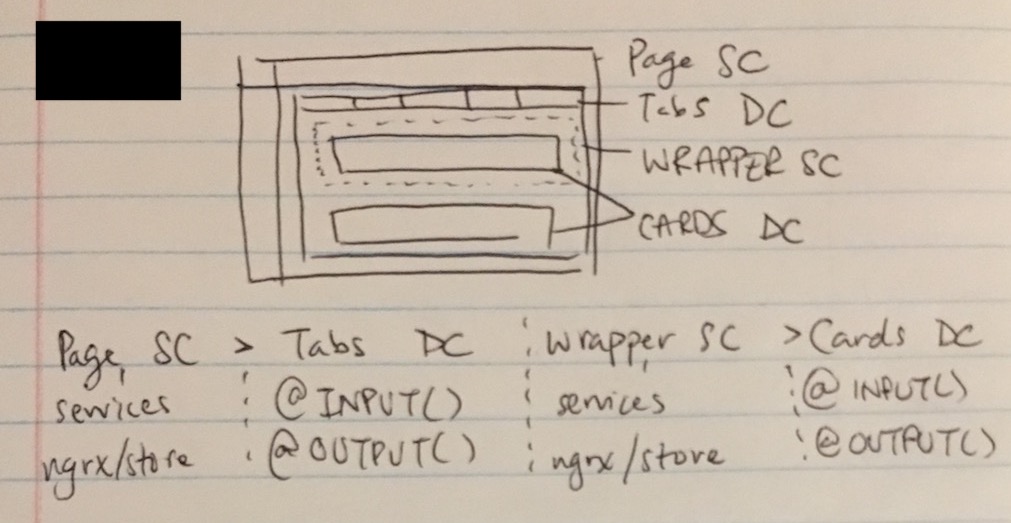 Page SC
Tabs DC
WRAPPER SC
CARDS DC
Page SC > Tabs DC ¦ Wrapper SC > Cards DC
services ¦ @INPUT() ¦ services ¦ @INPUT()
ngrx/store ¦ @OUTPUT() ¦ ngrx/store ¦ @OUTPUT()